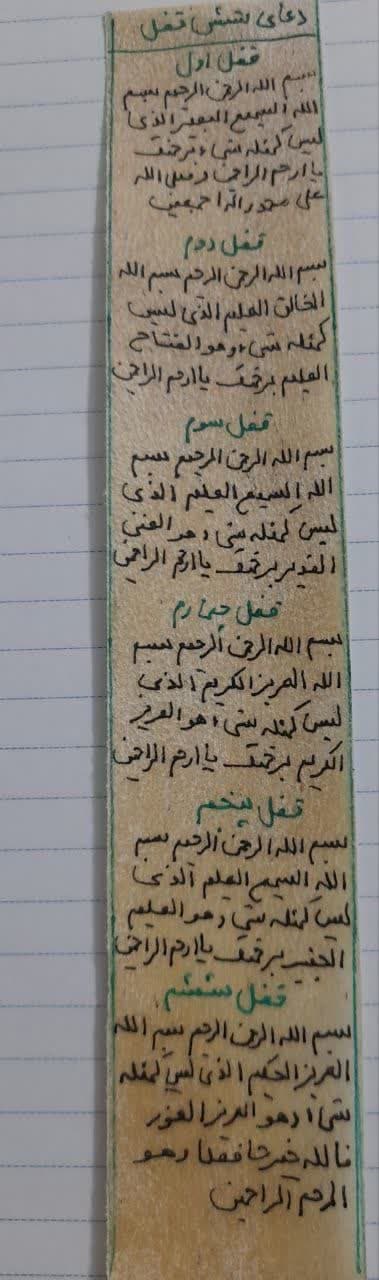 دعای شش قفل
قفل اول
بسم الله الرحمن الرحیم بسم
الله السمیع البصیر الذی
لیس کمثله شیء برحمتک
یا ارحم الراحمین و صلی الله
علی محمد و آله اجمعین
قفل دوم
بسم الله الرحمن الرحیم بسم الله
الخالق العلیم الذی لیس
کمثله شیء وهو الفتاح
العلیم برحمتک یا ارحم الراحمین
قفل سوم
بسم الله الرحمن الرحیم بسم
الله السمیع العلیم الذی
لیس کمثله شیء وهو الغنی
القدیر برحمتک یا ارحم الراحمین
قفل چهارم
بسم الله الرحمن الرحیم بسم
الله العزیز الکریم الذی
لیس کمثله شیء وهو العزیز
الکریم برحمتک یا ارحم الراحمین
قفل پنجم
بسم الله الرحمن الرحیم بسم
الله السمیع العلیم الذی
لیس کمثله شیء وهو العلیم
الخبیر برحمتک یا ارحم الراحمین
قفل ششم
بسم الله الرحمن الرحیم بسم الله
العزیز الحکیم الذی لیس کمثله
شیء وهو العزیز الغفور
فالله خیر حافظا وهو
الرحم الراحمین